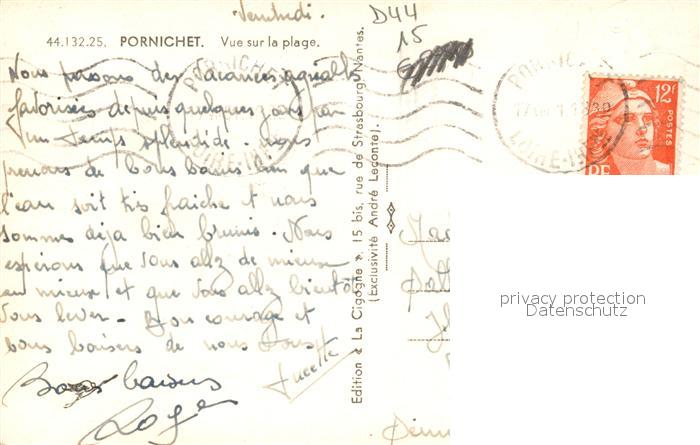 Vendredi.
D44
15
44.132.25. PORNICHET. Vue sur la plage.
Nous passons des vacances agréables
favorisées depuis quelques jours par
un temps splendide. nous
prenons de bons bains bien que
l'eau soit très fraîche et nous
sommes déjà bien brunis. Nous
espérons que vous allez de mieux
en mieux et que vous allez bientôt
vous lever. Bon courage et
bons baisers de nous tous
Lucette
Bons baisers
Roger
Edition « La Cigogne », 15 bis, rue de Strasbourg, Nantes.
(Exclusivité André Leconte).
PORNICHET
LOIRE-INF
PORNICHET
LOIRE-INF
12F
POSTES
RF
privacy protection
Datenschutz